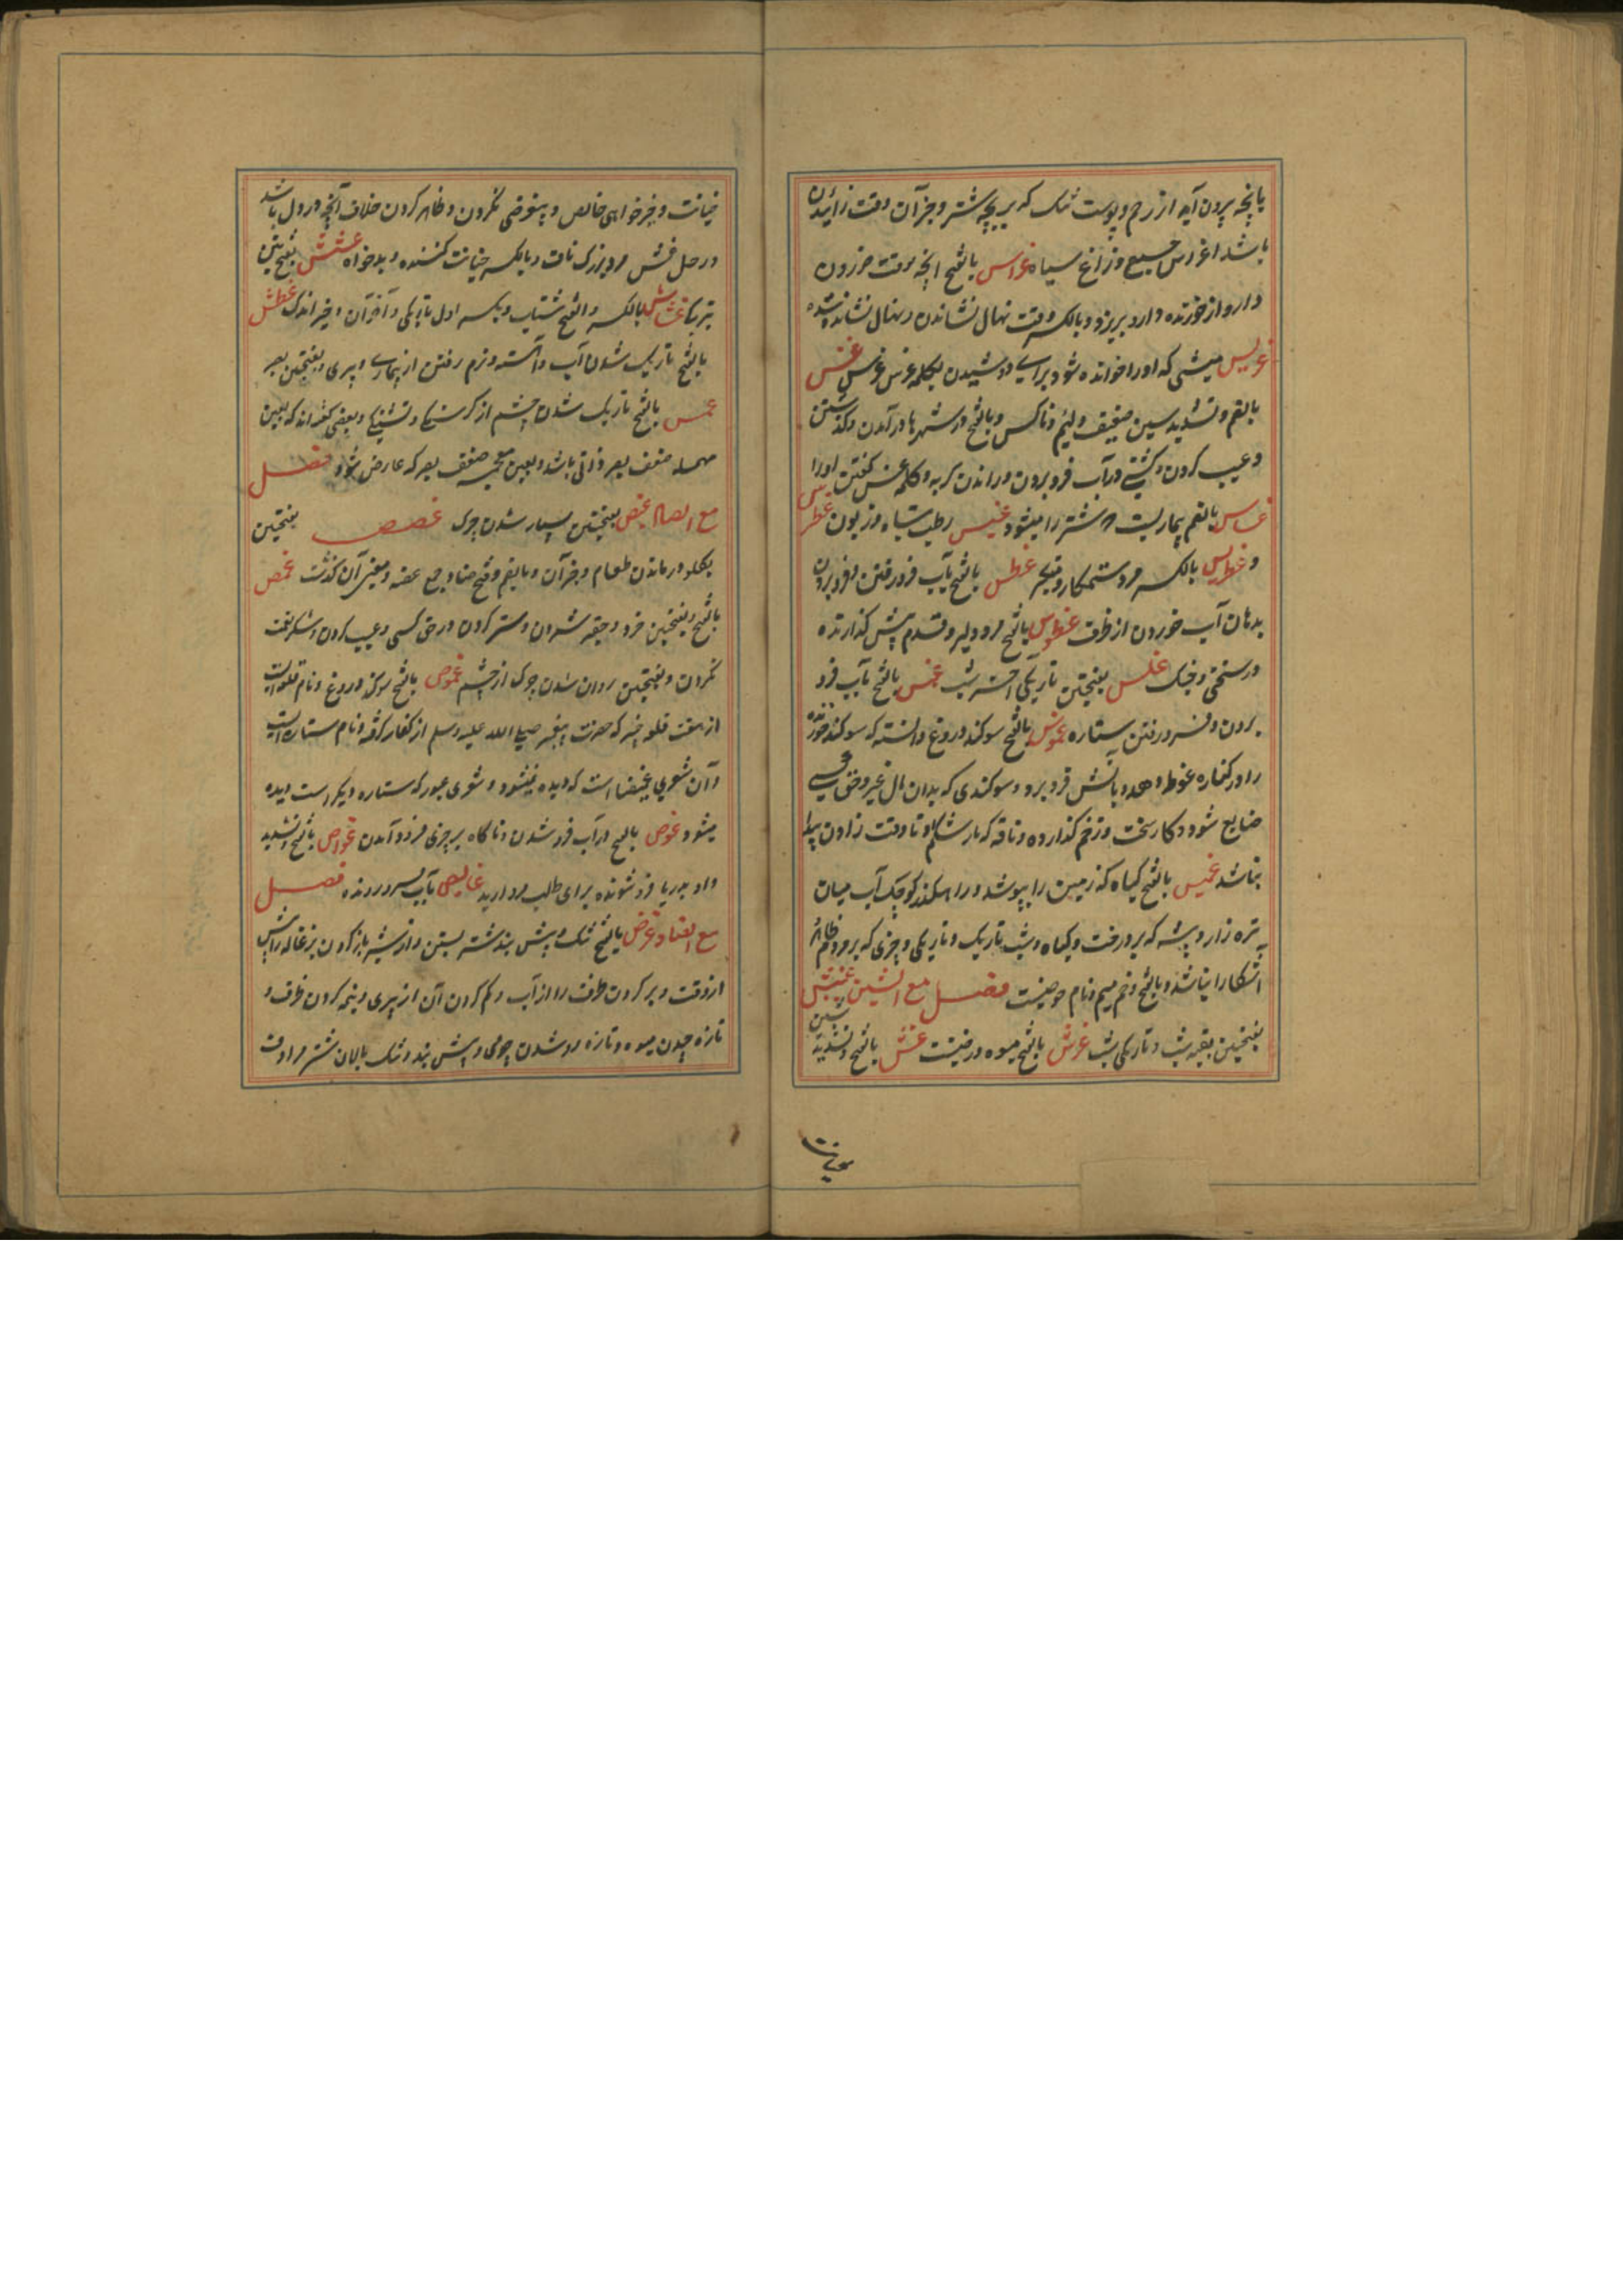 پانچه برون آید از رحم و پوست تنک که بر بچه شتر و جز آن وقت زائیدن
باشد اغراس جمع و زاغ سیاه غراس بالفتح انچه وقت خوردن
دارو از خورنده دارو بریزد و بالکسر وقت نهال نشاندن و نهال نشانده شده
غریس میشی که او را خوانده شود برای دوشیدن بکلمه غرس غرس غس
بالضم و تشدید سین ضعیف و لئیم و ناکس و بالفتح در شهرها در آمدن و گذشتن
و عیب کردن و کشتی در آب فرو بردن و راندن گربه و کلمه غس گفتن او را
غساس بالضم بیماریست مر شتر را میشود غسیس رطب تباه و زبون غطرس
و غطریس بالکسر مرد ستمکار و متکبر غطس بالفتح بآب فرو رفتن و فرو بردن
بدهان آب خوردن از ظرف غطوس بالفتح مرد دلیر و قدم پیش گذارنده
در سختی و جنک غلس بفتحتین تاریکی آخر شب غمس بالفتح بآب فرو
بردن و فرو رفتن ستاره غموس بالفتح سوکند دروغ دانسته که سوکند خورنده
را در گناره غوطه دهد و بآتش فرو برد و سوکندی که بدان مال غیر و حق کسی
ضایع شود و کار سخت و زخم گذارده و ناقه که بار شکم او تا وقت زادن پیدا
نباشد غمیس بالفتح گیاه که زمین را بپوشد و آب کوچک میان
تره زار و بیشه که پر درخت و گیاه و شب تاریک و تاریکی و چیزی که بر مردم ظاهر
آشکارا نباشد و بالفتح و ضم میم و نام موضعیست فصل مع الشین غبش
بفتحتین بقیه شب و تاریکی شب غرش بالفتح میوه درختیست غش بالفتح و تشدید شین
خیانت
خیانت و خیرخواهی خالص و بیغرضی نکردن و ظاهر کردن خلاف آنچه در دل باشد
در حل غش مرد بزرک ناف و بالکسر خیانت کننده و بدخواه غشش بفتحتین
تیرگی غشاش بالکسر و الفتح شتاب و بکسر اول تاریکی و آخر آن و چیز اندک غطش
بالفتح تاریک شدن آب و آهسته و نرم رفتن از بیماری و پیری و بفتحتین بصر
غمش بالفتح تاریک شدن چشم از گرسنگی و تشنگی و بعضی گفته اند که بعین
مهمله ضعف بصر ذاتی باشد و بغین معجمه ضعف بصر که عارض شود فصل
مع الصاد غبص بفتحتین بسیار شدن چرک غصص بفتحتین
بگلو در ماندن طعام و جز آن و بالضم و فتح صاد جمع غصه و معنی آن گذشت غمص
بالفتح و بفتحتین خرد و حقیر شمردن و ستر کردن در حق کسی و عیب کردن و شکر نعمت
نکردن و بفتحتین روان شدن چرک از چشم غموص بالفتح سوکند دروغ و نام قلعه ایست
از هفت قلعه خیبر که حضرت پیغمبر صلی الله علیه وسلم از کفار گرفته و نام ستاره ایست
و آن شعری غمیصا است که دیده نمیشود و شعری عبور که ستاره دیگر است دیده
میشود غوص بالفتح در آب فرو شدن و ناگاه بر چیزی فرود آمدن غواص بالفتح و تشدید
واو بدریا فرو شونده برای طلب مروارید غایص بآب فرو رونده فصل
مع الضاد غرض بالفتح تنک و پیش بند شتر بستن و از شیر باز کردن بزغاله را پیش
از وقت و پر کردن ظرف را از آب و کم کردن آن از پری و نیمه کردن ظرف و
تازه چیدن میوه و تازه رو شدن چوبی و پیش بند و تنک پالان شتر مرادف